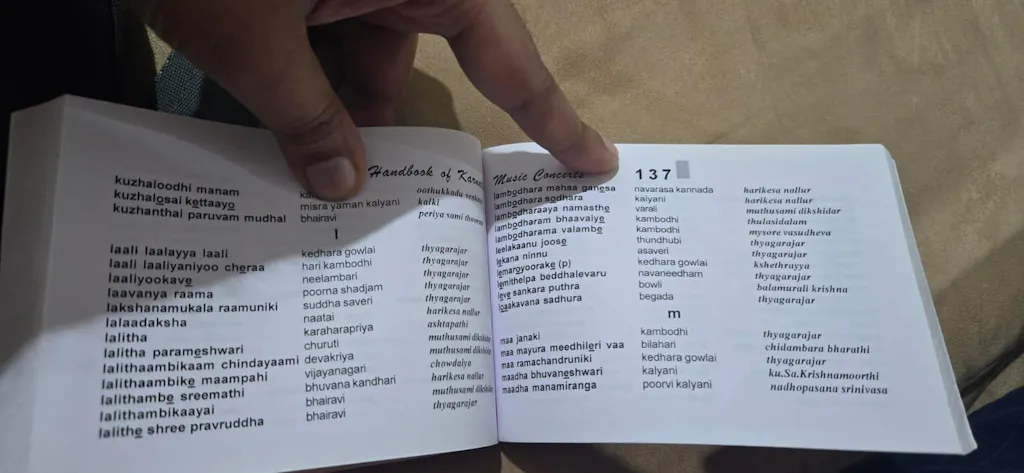 Handbook of Karna
kuzhaloodhi manam oothukkadu
kuzhalosai kettaayo misra yaman kalyani kalki
kuzhanthai paruvam mudhal bhairavi periya sami
l
laali laalayya laali kedhara gowlai thyagarajar
laali laaliyaniyoo cheraa hari kambodhi thyagarajar
laaliyookave neelambari thyagarajar
laavanya raama poorna shadjam thyagarajar
lakshanamukala raamuniki suddha saveri thyagarajar
lalaadaksha naatai harikesa nallur
lalitha karaharapriya ashtapathi
lalitha parameshwari churuti muthusami dikshidar
lalithaambikaam chindayaami devakriya muthusami dikshidar
lalithaambike maampahi vijayanagari chowdaiya
lalithambe sreemathi bhuvana kandhari harikesa nallur
lalithambikaayai bhairavi muthusami dikshidar
lalithe shree pravruddha bhairavi thyagarajar
Music Concerts 137
lambodhara mahaa ganesa navarasa kannada harikesa nallur
lambodhara sodhara kalyani harikesa nallur
lambodharaaya namasthe varali muthusami dikshidar
lambodharam bhaavaiye kambodhi thulasidalam
lambodharama valambe kambodhi mysore vasudheva
leelakaanu joose thundhubi thyagarajar
lekana ninnu asaveri thyagarajar
lemaroyoorake (p) kedhara gowlai kshethrayya
lemithelpa beddhalevaru navaneedham thyagarajar
leve sankara puthra bowli balamurali krishna
loaakavana sadhura begada thyagarajar
m
maa janaki kambodhi thyagarajar
maa mayura meedhileri vaa bilahari chidambara bharathi
maa ramachandruniki kedhara gowlai thyagarajar
maadha bhuvaneshwari kalyani ku.Sa.Krishnamoorthi
maadha manamiranga poorvi kalyani nadhopasana srinivasa